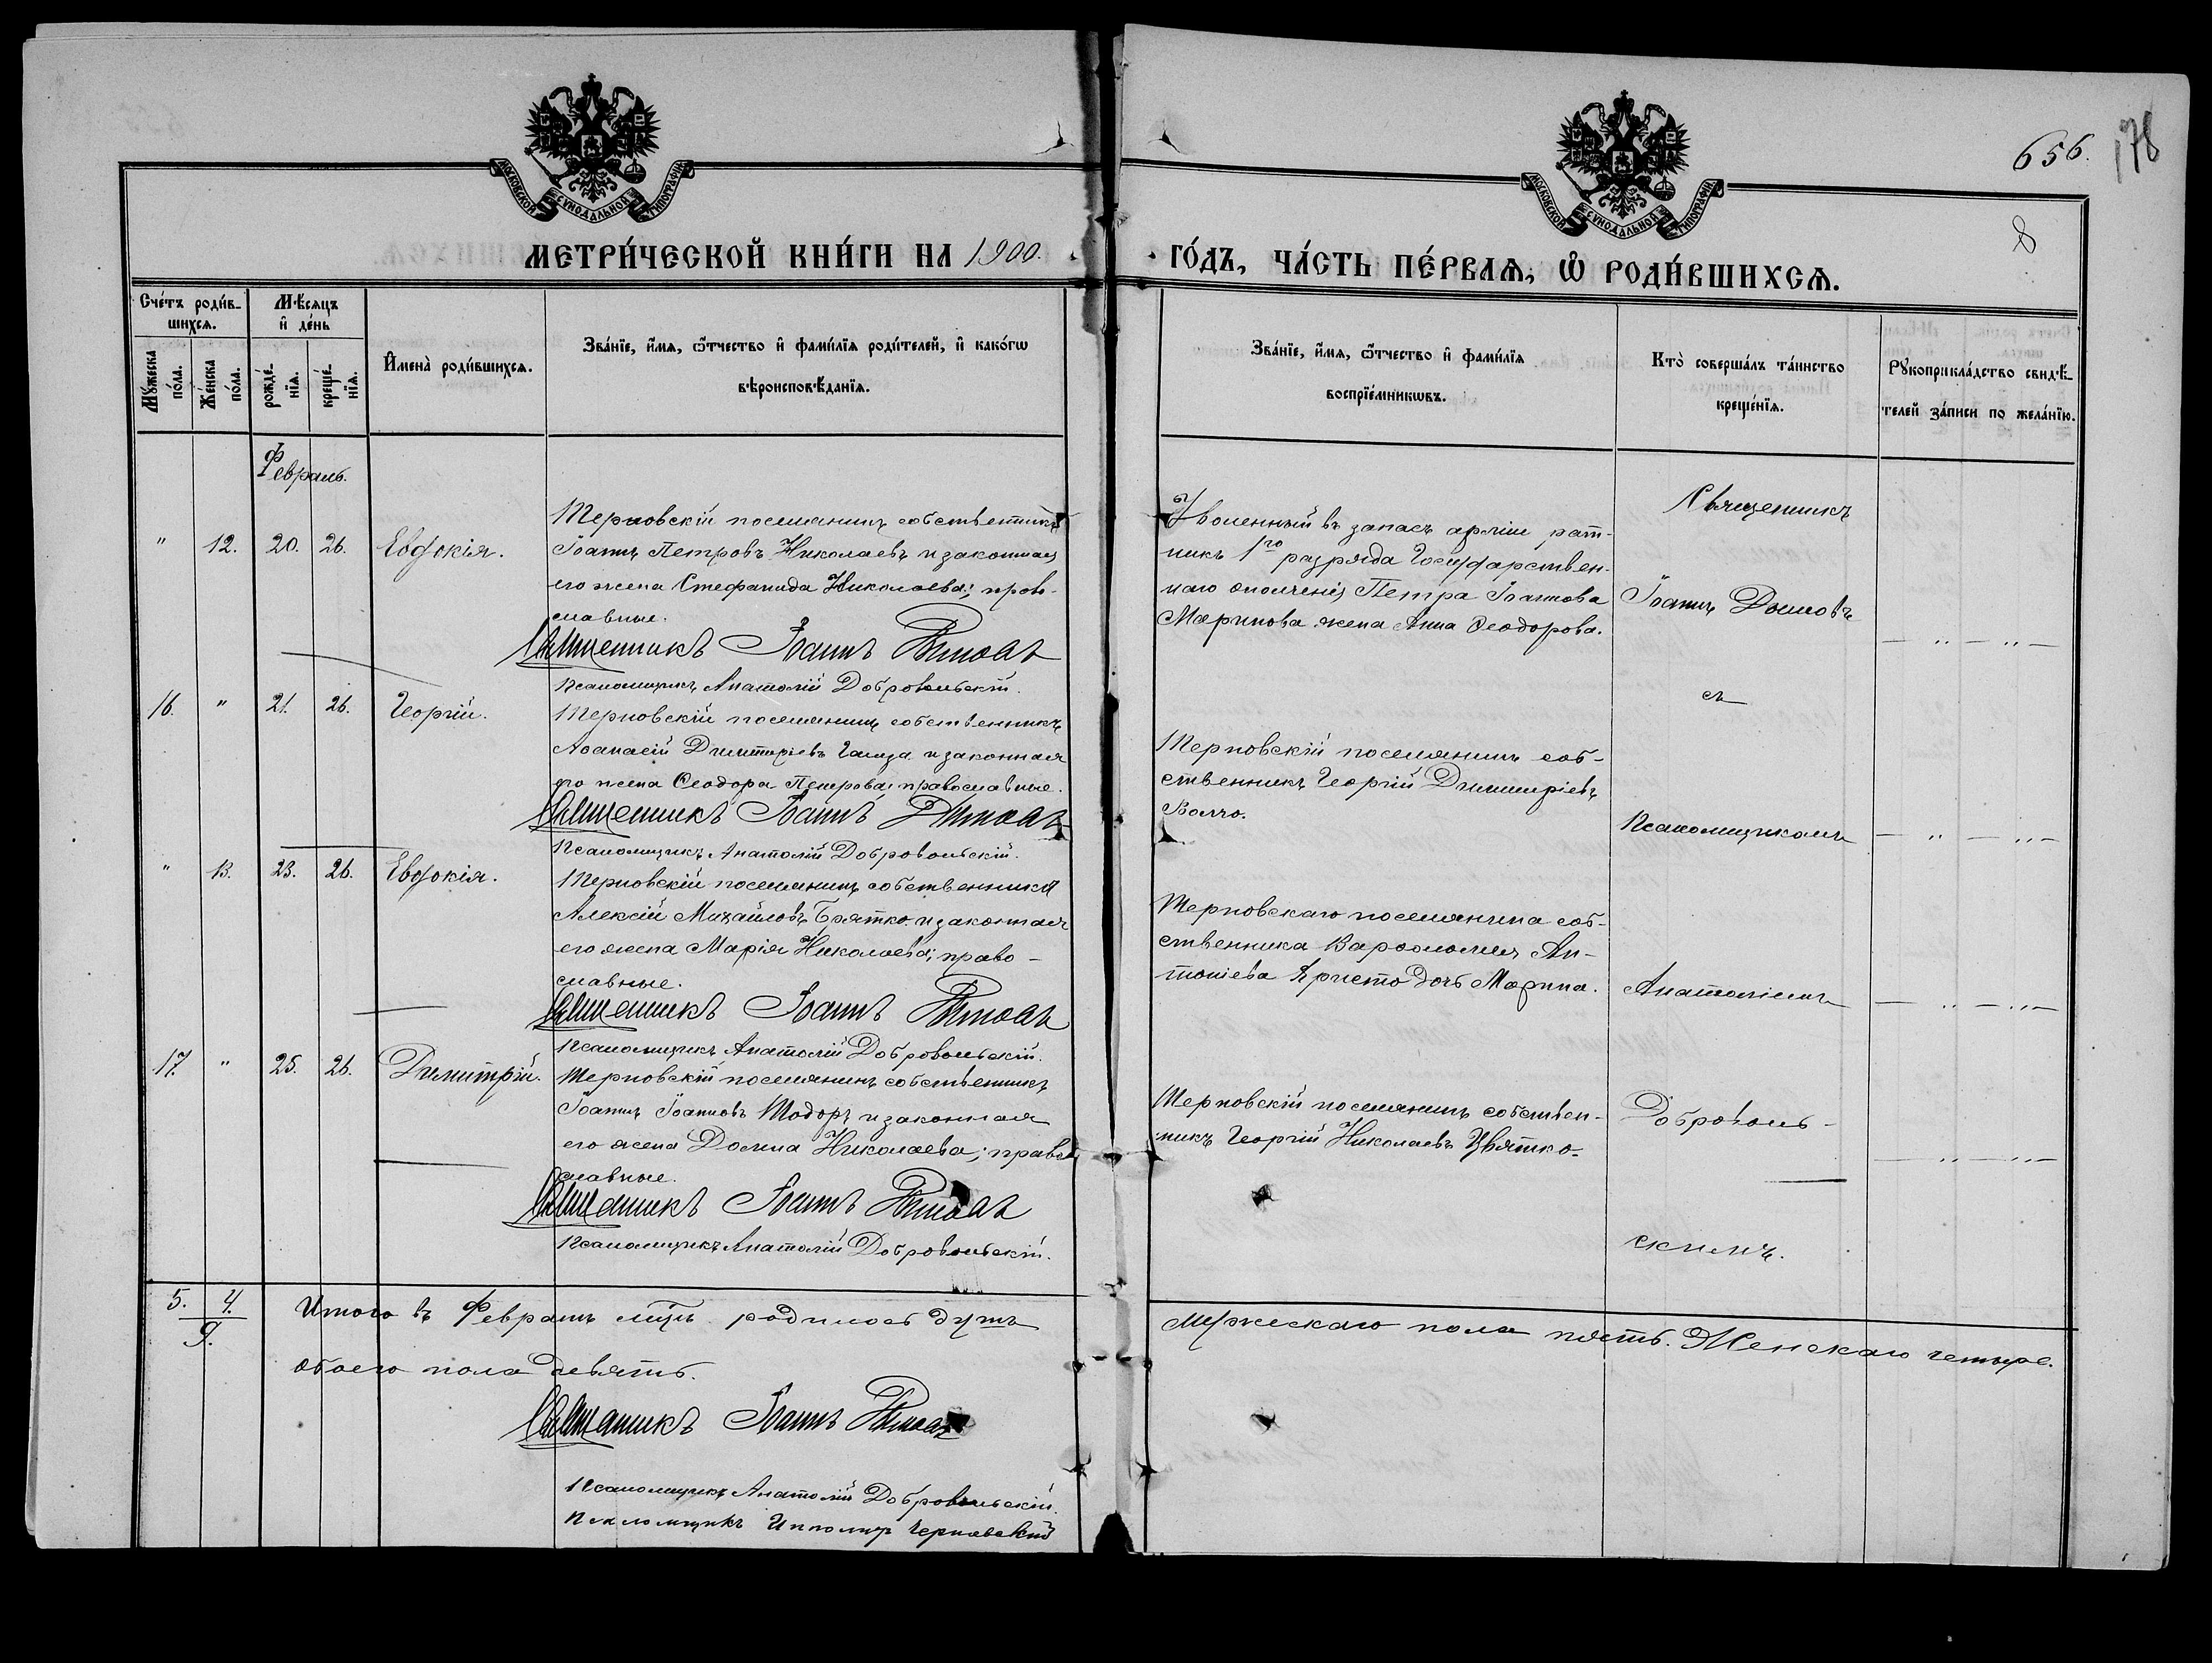 656.
178
8
МОСКОВСКОЙ СУНОДАЛЬНОЙ ТИПОГРАФИИ
МОСКОВСКОЙ СУНОДАЛЬНОЙ ТИПОГРАФИИ
МЕТРИ́ЧЕСКОЙ КНИ́ГИ НА 1900. ГО́ДЪ, ЧА́СТЬ ПЕ́РВАѦ, Ѡ҆ РОДИ́ВШИХСѦ.
Сче́тъ роди́в-
шихсѧ.
Мꙋжеска по́ла.
Же́нска по́ла.
Мѣ́сѧцъ
и҆ де́нь
рожде́-
нїѧ.
креще́-
нїѧ.
И҆мена̀ роди́вшихсѧ.
Зва́нїе, и҆́мѧ, ѻ҆́тчество и҆ фами́лїѧ роди́телей, и҆ како́гѡ
вѣроисповѣ́данїѧ.
Зва́нїе, и҆́мѧ, ѻ҆́тчество и҆ фами́лїѧ
воспрїе́мникѡвъ.
Кто̀ соверша́лъ та́инство
креще́нїѧ.
Рꙋкоприкла́дство свидѣ́-
телей за́писи по жела́нїю.
Февраль.
" 12. 20. 26. Евдокія.
Терновскій поселянинъ собственникъ
Іоаннъ Петровъ Николаевъ и законная
его жена Стефанида Николаева; право-
славные.
Священникъ Іоаннъ
Псаломщикъ Анатолій Добровольскій.
Уволенный въ запасъ арміи рат-
никъ 1го разряда Государствен-
наго ополченія Петра Іоаннова
Маринова жена Анна Ѳеодорова.
Священникъ
Іоаннъ
съ
Псаломщикомъ
Анатоліемъ
Доброволь-
скимъ.
16. " 21. 26. Георгій.
Терновскій поселянинъ собственникъ
Аѳанасій Димитріевъ и законная
его жена Ѳеодора Петрова; православные.
Священникъ Іоаннъ
Псаломщикъ Анатолій Добровольскій.
Терновскій поселянинъ соб-
ственникъ Георгій Димитріевъ
Волчо.
" 13. 23. 26. Евдокія.
Терновскій поселянинъ собственникъ
Алексій Михайловъ Братко и законная
его жена Марія Николаева; право-
славные.
Священникъ Іоаннъ
Псаломщикъ Анатолій Добровольскій.
Терновскаго поселянина соб-
ственника Варѳоломея Ан-
тоніева Христо дочь Марина.
17. " 25. 26. Димитрій.
Терновскій поселянинъ собственникъ
Іоаннъ Іоанновъ Тодоръ и законная
его жена Домна Николаева; право-
славные.
Священникъ Іоаннъ
Псаломщикъ Анатолій Добровольскій.
Терновскій поселянинъ собствен-
никъ Георгій Николаевъ Цвятко.
5. 4.
9.
Итого въ Февралѣ мцѣ родилось душъ мужескаго пола пять. Женскаго четыре.
обоего пола девять.
Священникъ Іоаннъ
Псаломщикъ Анатолій Добровольскій.
Псаломщикъ Чернявскій